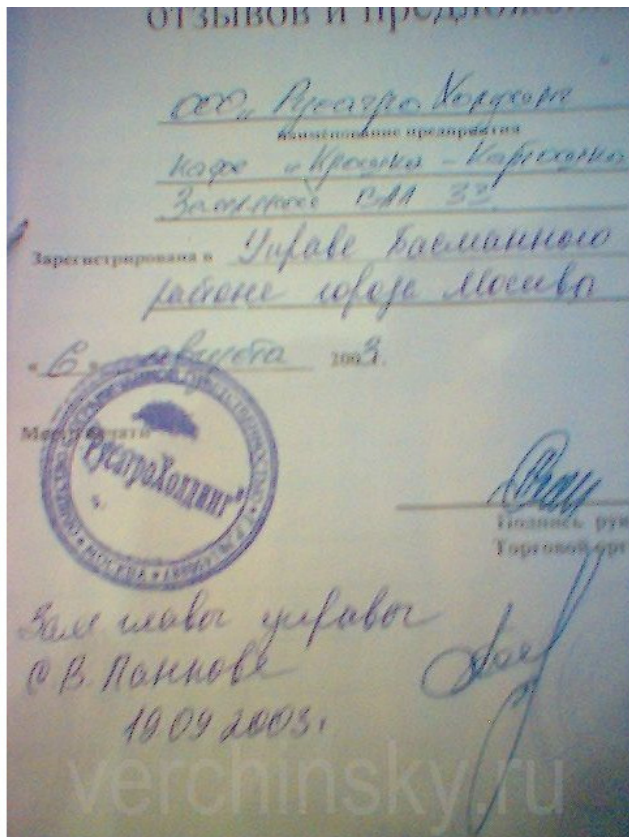 отзывов и предложен
ООО „Русагро Холдинг
наименование предприятия
кафе „Крошка-Картошка
33
Зарегистрирована в Управе Басманного
районе города Москвы
„6" августа 2003г.
Место печати
"РусагроХолдинг"
МОСКВА
Подпись рук
Торговой орг
Зам главы управы
С В. Панкова
19 09 2003г
verchinsky.ru